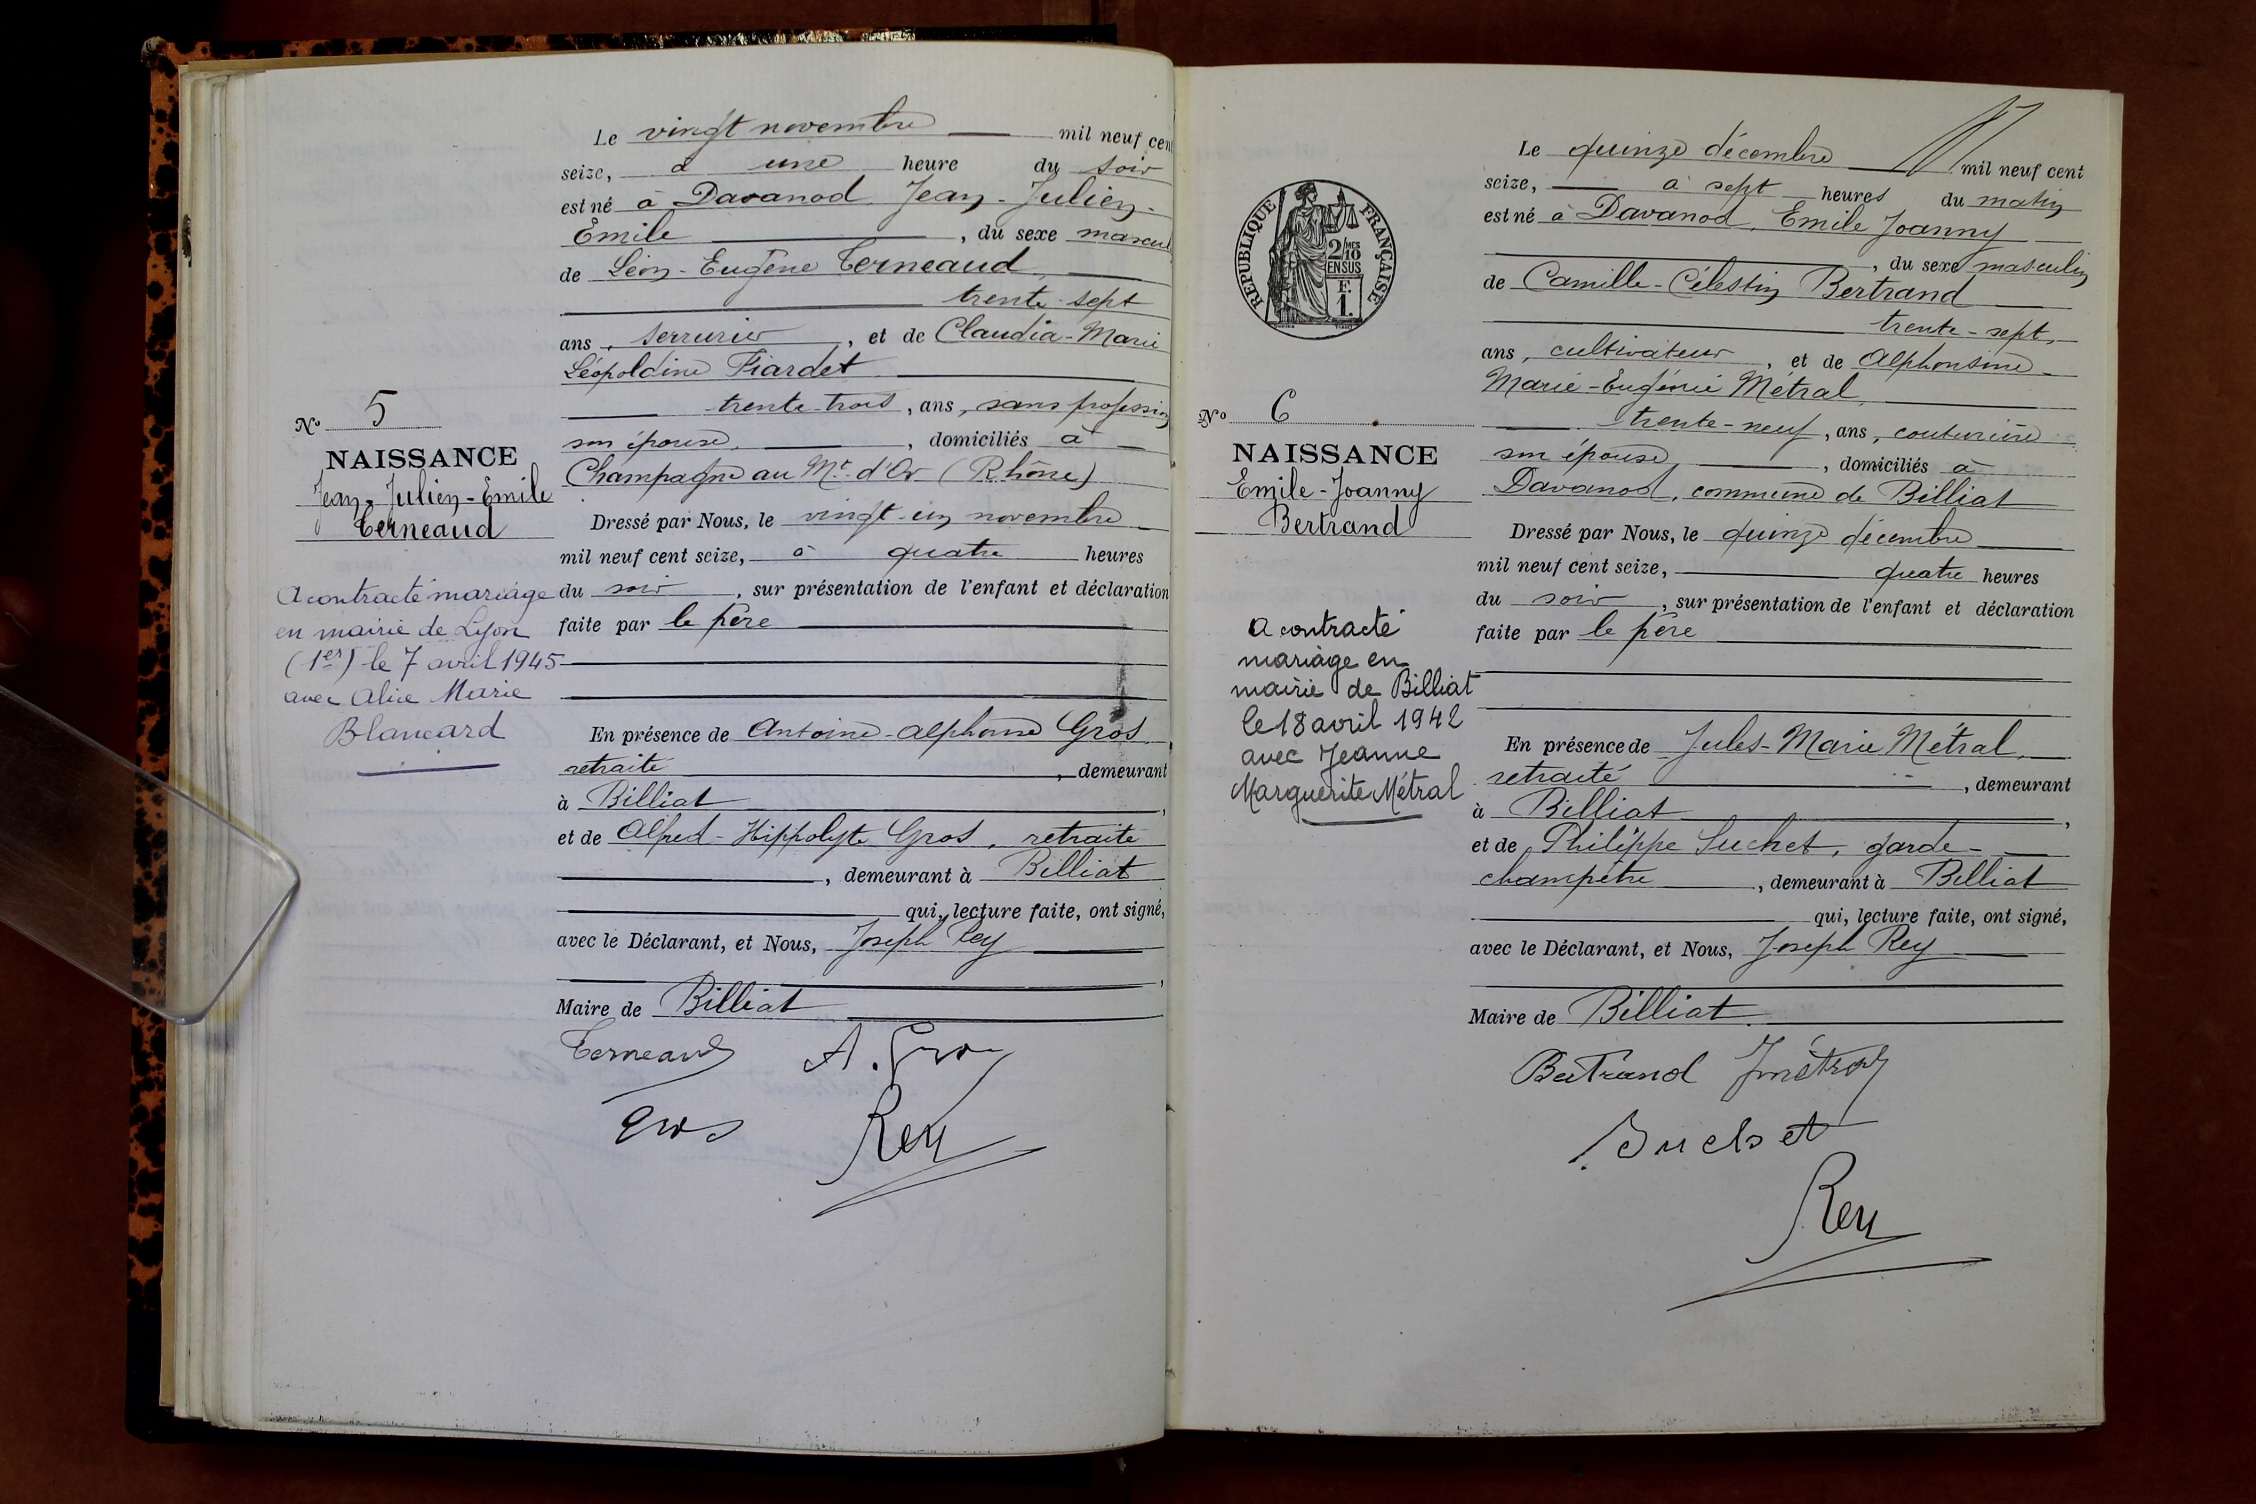 Le vingt novembre mil neuf cen
seize, à une heure du soir
est né à Davanod Jean-Julien-
Emile, du sexe mascul
de Léon-Eugène Terneaud,
trente-sept
ans, serrurier, et de Claudia-Marie
Léopoldine Fiardet
trente-trois, ans, sans profession
son épouse, domiciliés à
Champagne au Mt. d'Or (Rhône)
Dressé par Nous, le vingt-un novembre
mil neuf cent seize, à quatre heures
du soir, sur présentation de l'enfant et déclaration
faite par le père
En présence de Antoine-Alphonse Gros,
retraité, demeurant
à Billiat,
et de Alfred-Hippolyte Gros, retraité
, demeurant à Billiat
qui, lecture faite, ont signé,
avec le Déclarant, et Nous, Joseph Rey
,
Maire de Billiat
Terneaud A. Gros
Gros Rey
No 5
NAISSANCE
Jean-Julien-Emile
Terneaud
A contracté mariage
en mairie de Lyon
(1er) le 7 avril 1945
avec Alice Marie
Blancard
Le quinze décembre mil neuf cent
seize, à sept heures du matin
est né à Davanod, Emile Joanny
, du sexe masculin
de Camille-Célestin Bertrand
trente-sept,
ans, cultivateur, et de Alphonsine
Marie-Eugénie Métral,
trente-neuf, ans, couturière
son épouse, domiciliés à
Davanod, commune de Billiat
Dressé par Nous, le quinze décembre
mil neuf cent seize, quatre heures
du soir, sur présentation de l'enfant et déclaration
faite par le père
En présence de Jules-Marie Métral,
retraité, demeurant
à Billiat,
et de Philippe Suchet, garde-
champêtre, demeurant à Billiat
qui, lecture faite, ont signé,
avec le Déclarant, et Nous, Joseph Rey
Maire de Billiat
Bertrand JMétral
Suchet
Rey
RÉPUBLIQUE FRANÇAISE
2/MES
10
EN SUS
F.
1.
No 6
NAISSANCE
Emile-Joanny
Bertrand
A contracté
mariage en
mairie de Billiat
le 18 avril 1942
avec Jeanne
Marguerite Métral